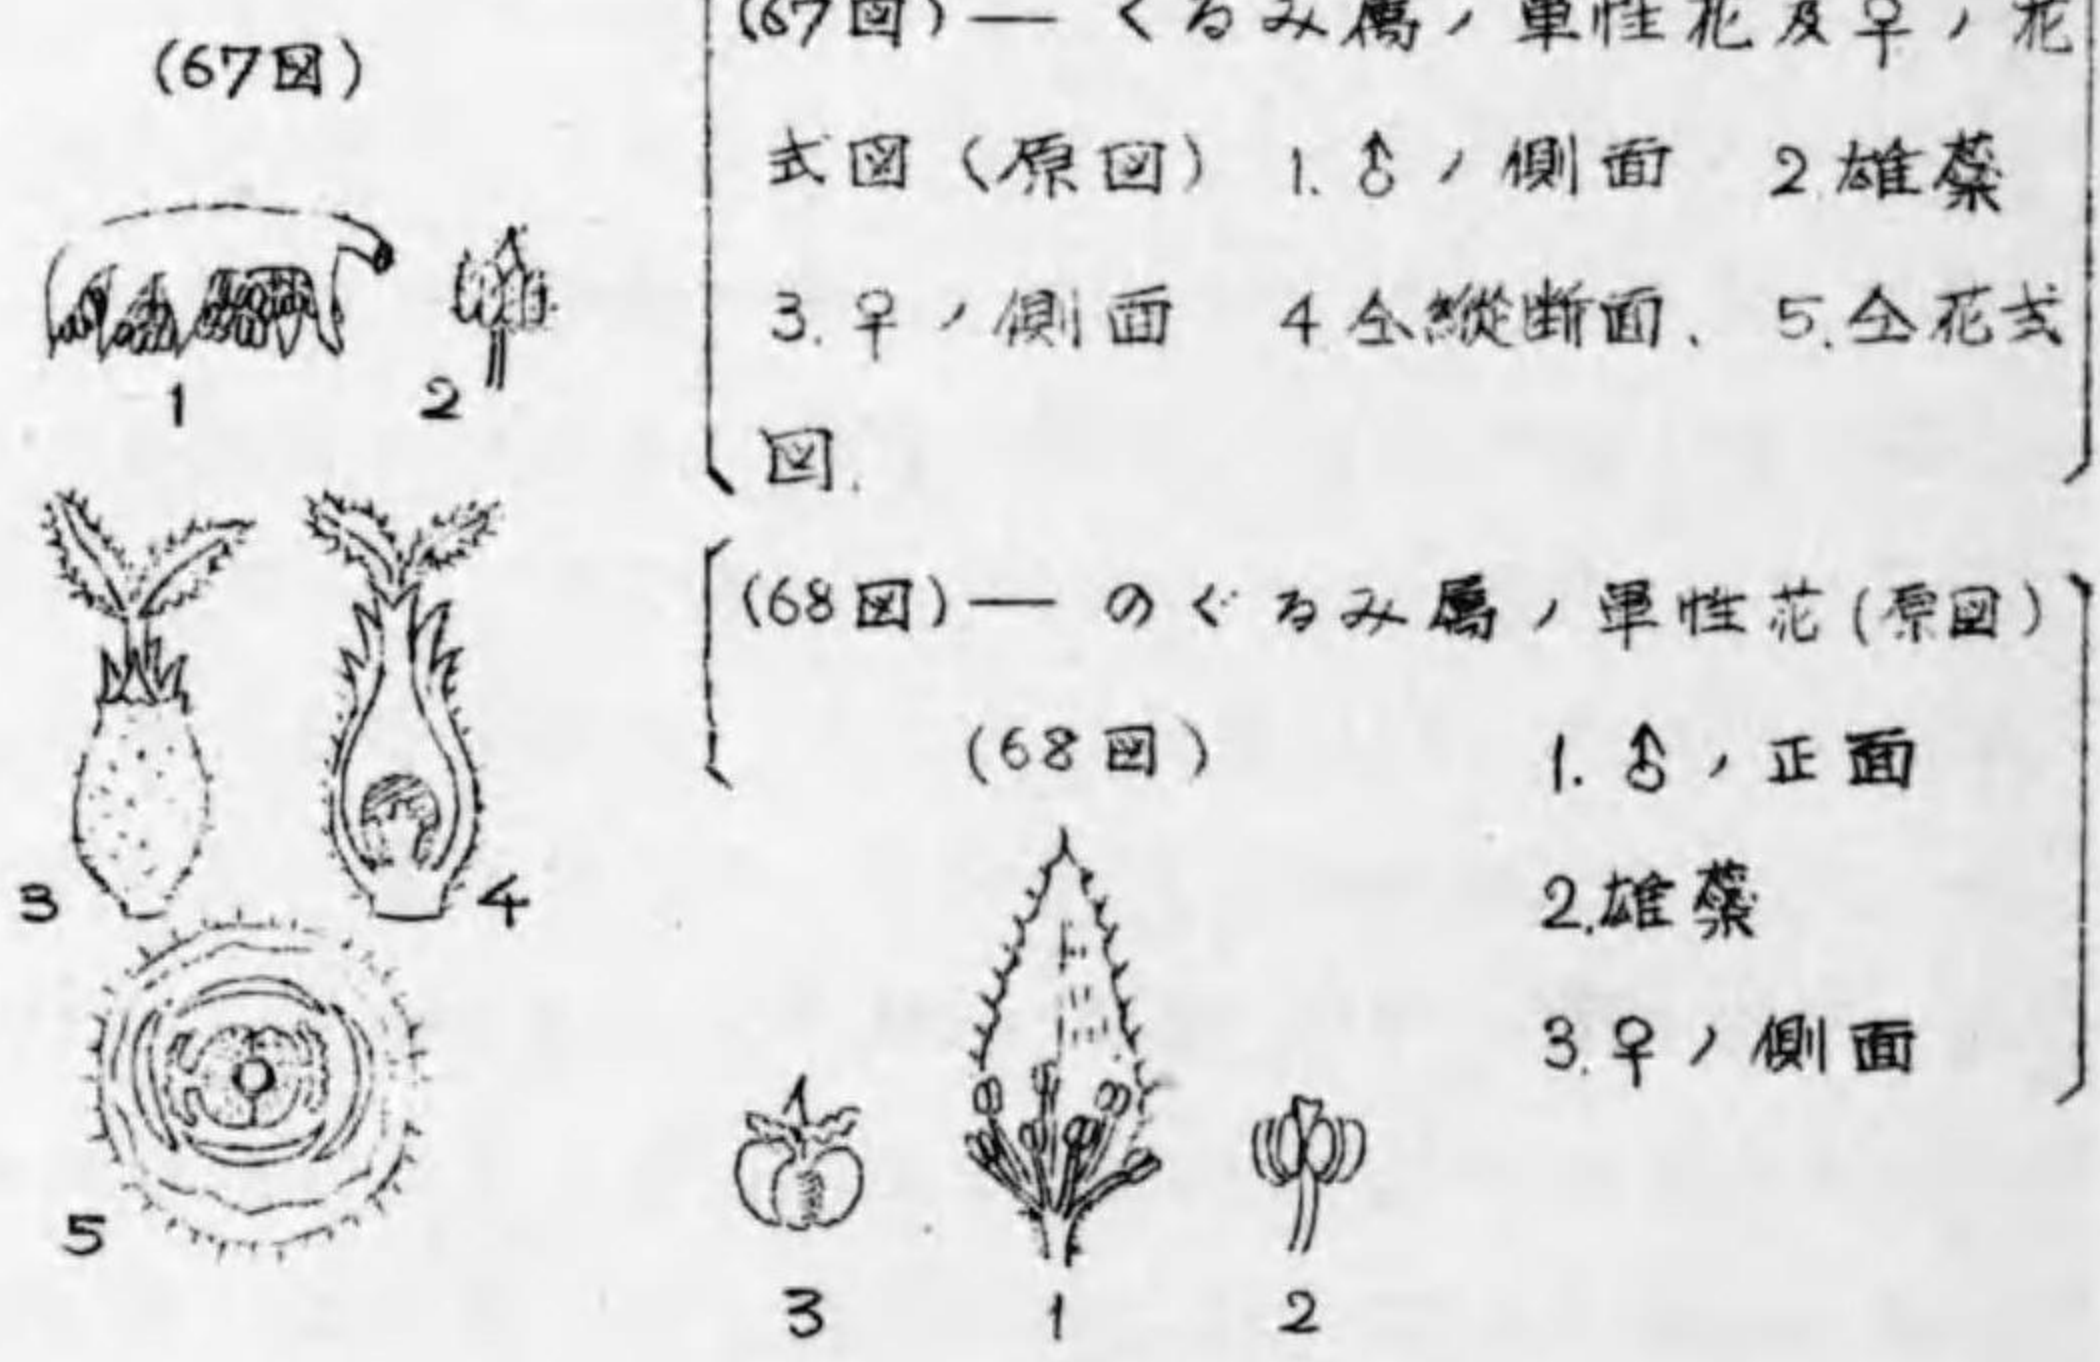 (67図)
(67図)— くるみ属ノ単性花及♀ノ花
式図(原図) 1.♂ノ側面 2.雄蘂
3.♀ノ側面 4.仝縦断面、 5.仝花式
図.
1
2
3
4
5
(68図)— のぐるみ属ノ単性花(原図)
(68図)
1.♂ノ正面
2.雄蘂
3.♀ノ側面
3 1 2